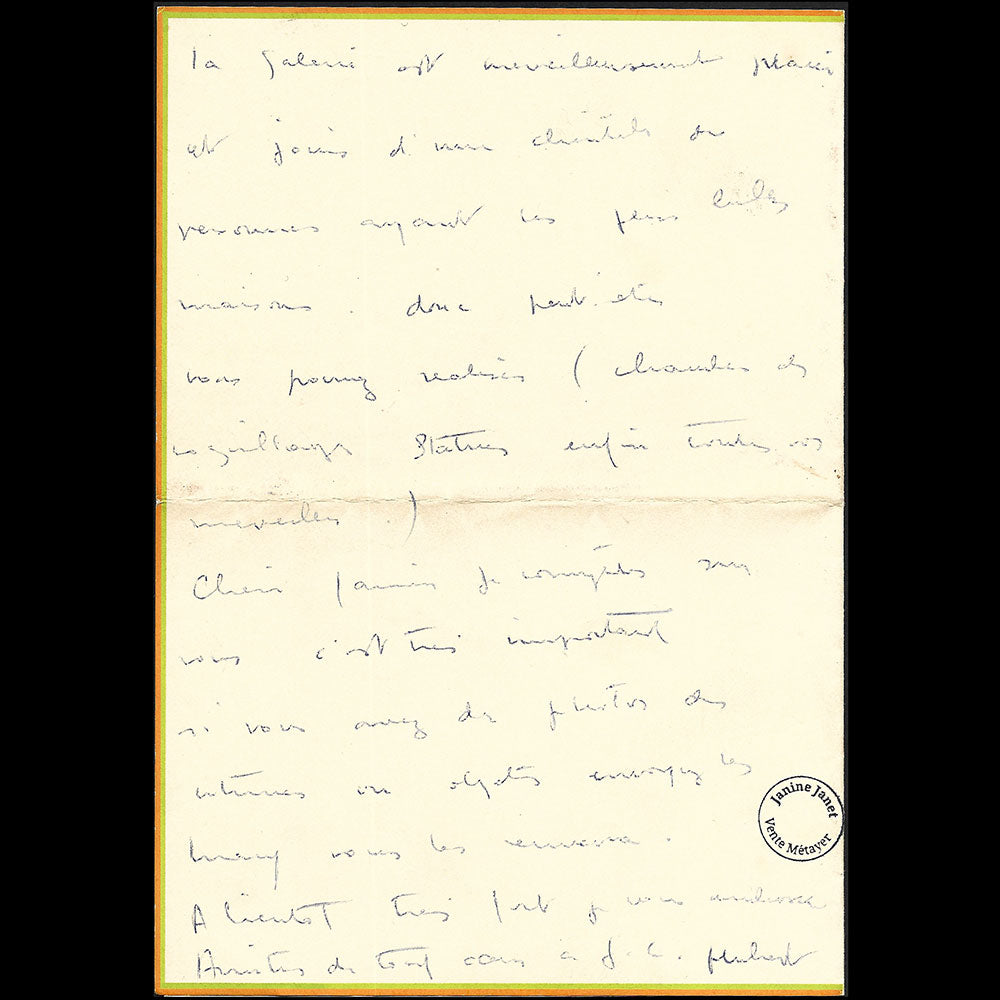 la galerie est merveilleusement placée
et jouis d'une clientele de
personnes ayant les plus belles
maisons. donc peut-etre
vous pourrez realiser (chambres de
coquillages Statues enfin toutes vos
merveilles.)
Chère Janine je compte sur
vous c'est très important
si vous avez des photos des
vitrines ou objets envoyez les
vous les renverra.
A bientot très fort je vous embrasse
Amitiés de tout coeur a J.C.
Janine Janet
Vente Métayer